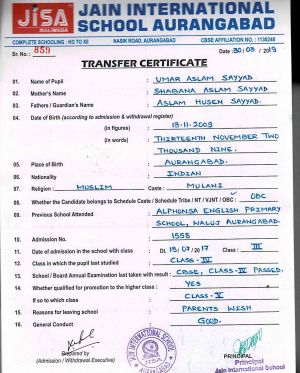 JISA
MALIWADA
JAIN INTERNATIONAL
SCHOOL AURANGABAD
COMPLETE SCHOOLING : KG TO XII NASIK ROAD, AURANGABAD CBSE AFFILIATION NO. : 1130248
Sr. No.: 859 Date : 30/03/2019
TRANSFER CERTIFICATE
01. Name of Pupil UMAR ASLAM SAYYAD
02. Mother's Name SHABANA ASLAM SAYYAD
03. Fathers / Guardian's Name ASLAM HUSEN SAYYAD.
04. Date of Birth (according to admission & withdrawal register)
(in figures) 13.11.2009
(in words) THIRTEENTH NOVEMBER TWO
THOUSAND NINE.
05. Place of Birth AURANGABAD.
06. Nationality INDIAN
07. Religion : MUSLIM Caste : MULANI
08. Whether the Candidate belongs to Schedule Caste / Schedule Tribe / NT / VJNT / OBC : OBC
09. Previous School Attended ALPHONSA ENGLISH PRIMARY
SCHOOL, WALUJ AURANGABAD.
10. Admission No. 1558
11. Date of admission in the school with class Dt. /07/2017 Class : III
12. Class in which the pupil last studied CLASS - IV
13. School / Board Annual Examination taken with result : CBSE, CLASS-IV PASSED.
14. Whether qualified for promotion to the higher class : YES
If so to which class CLASS - V
15. Reasons for leaving school PARENTS WISH
16. General Conduct GOOD.
Prepared by
(Admission / Withdrawal Executive)
JAIN INTERNATIONAL SCHOOL
AURANGABAD
PRINCIPAL
Principal
Jain International School